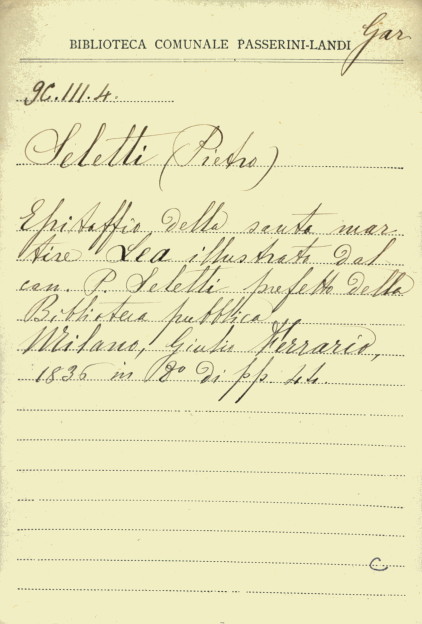 Gar
BIBLIOTECA COMUNALE PASSERINI-LANDI
9C.III.4.
Seletti (Pietro)
Epitaffio della santa mar
tire Lea illustrato dal
can. P. Seletti prefetto della
Biblioteca pubblica
Milano, Giulio Ferrario,
1836 in 8º di pp. 44.
C